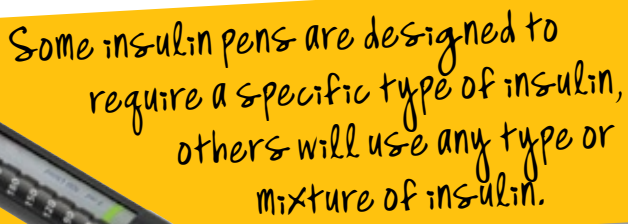 Some insulin pens are designed to
require a specific type of insulin,
others will use any type or
mixture of insulin.